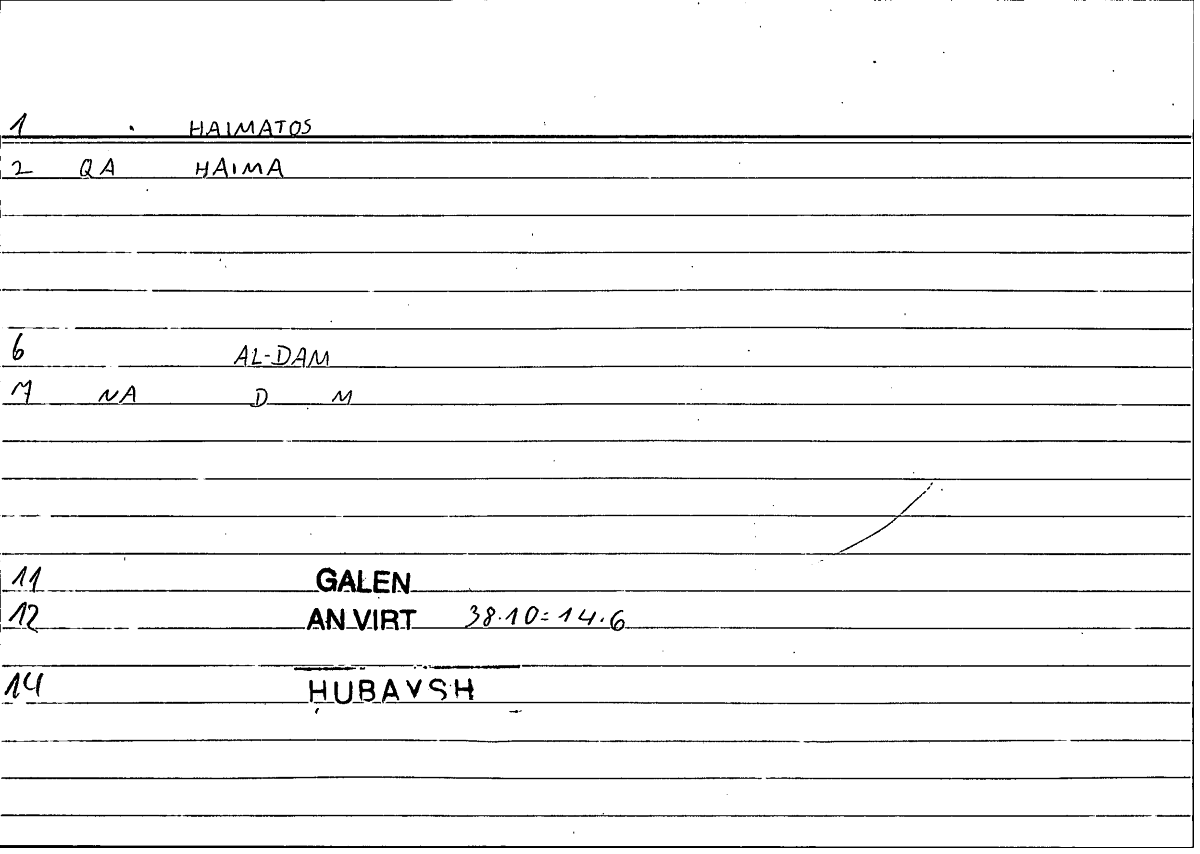 1 HAIMATOS
2 QA HAIMA
6 AL-DAM
7 NA D M
11 GALEN
12 AN VIRT 38.10=14.6
14 HUBAYSH